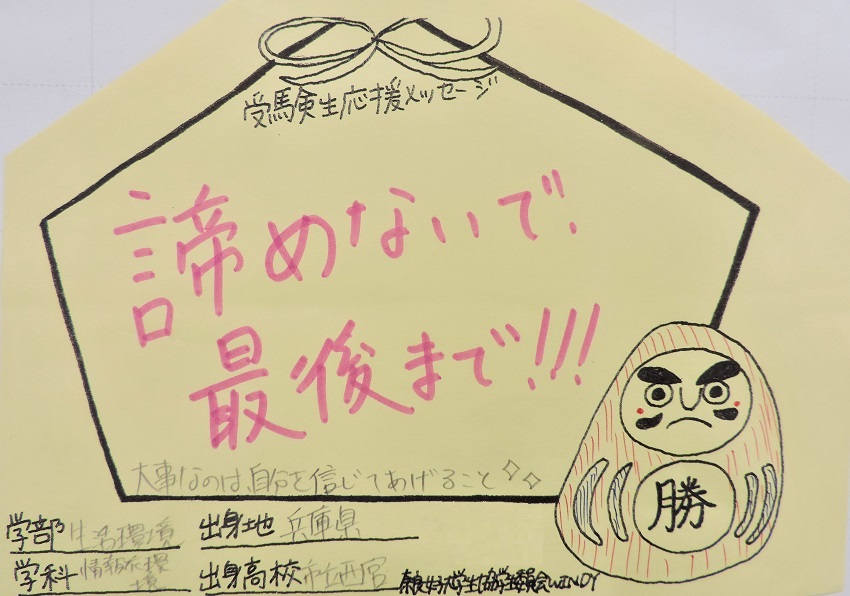 受験生応援メッセージ
諦めないで!
最後まで!!!
大事なのは、自分を信じてあげること
勝
学部 生活環境 出身地 兵庫県
学科 情報衣環境 出身高校 市立西宮
奈良女子大学生協学生委員会WINDY